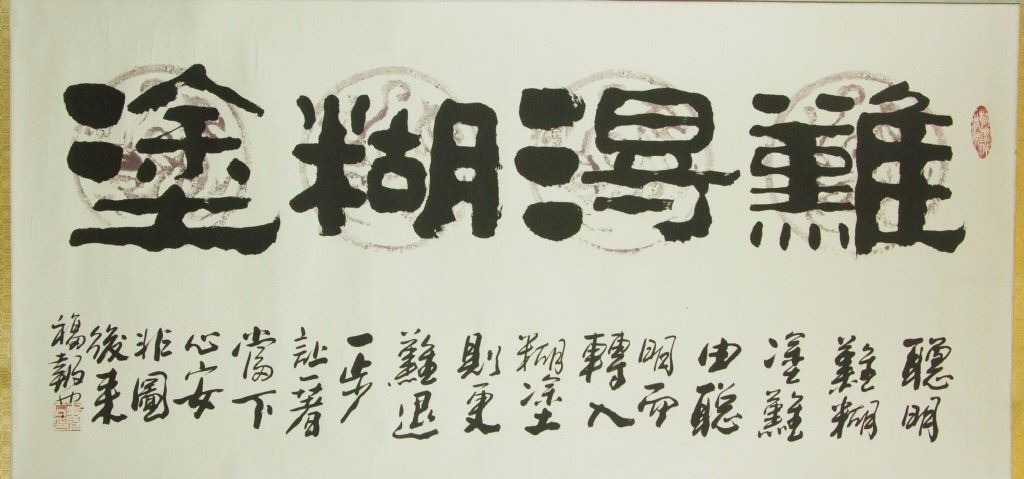 難得糊塗
聰明
難糊
塗難
由聰
明而
轉入
糊塗
則更
難退
一步
一著
當下
心安
非圖
後来
福報也